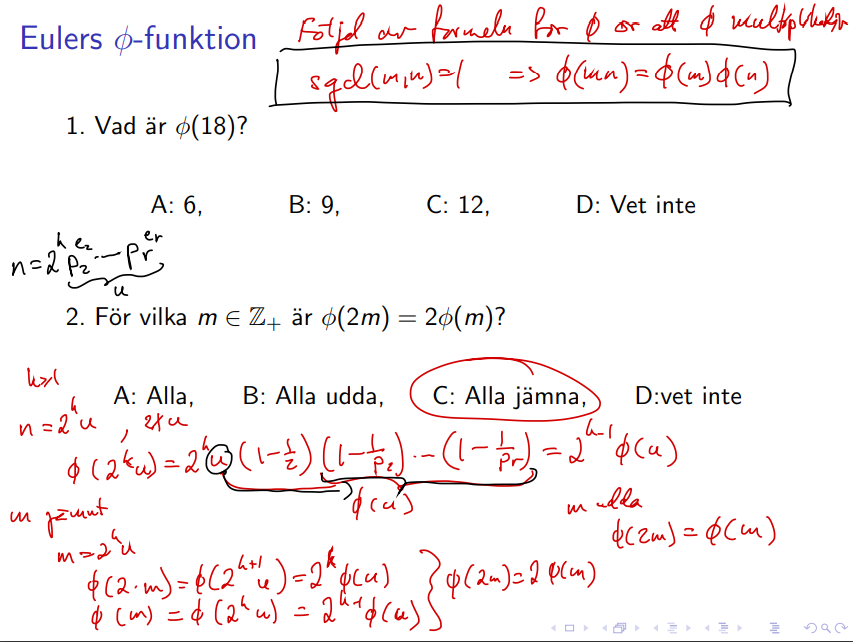 Eulers ϕ-funktion
Följd av formeln för ϕ är att ϕ multiplikativ
sgd(m,n)=1 => ϕ(mn)=ϕ(m)ϕ(n)
1. Vad är ϕ(18)?
A: 6, B: 9, C: 12, D: Vet inte
n=2^k p₂^e₂ ··· pᵣ^eᵣ
u
2. För vilka m ∈ ℤ₊ är ϕ(2m) = 2ϕ(m)?
k≥1
A: Alla, B: Alla udda, C: Alla jämna, D:vet inte
n=2^k u, 2∤u
ϕ(2^k u)=2^k u(1-1/2)(1-1/p₂)···(1-1/pᵣ)=2^(k-1) ϕ(u)
ϕ(u)
m jämnt
m=2^k u
m udda
ϕ(2m)=ϕ(m)
ϕ(2·m)=ϕ(2^(k+1) u)=2^k ϕ(u)
ϕ(m)=ϕ(2^k u)=2^(k-1) ϕ(u)
} ϕ(2m)=2ϕ(m)